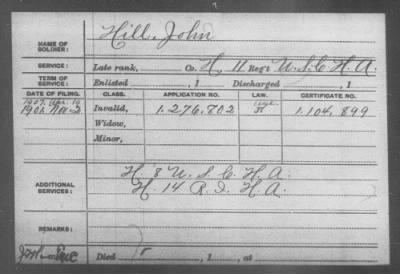 NAME OF SOLDIER: Hill, John
SERVICE: Late rank, Co. H, 11 Reg't U.S.C.H.A.
TERM OF SERVICE: Enlisted , 1 Discharged , 1
DATE OF FILING. CLASS. APPLICATION NO. LAW. CERTIFICATE NO.
1907, Apr. 19
1901, Nov. 2 Invalid, 1.276.702 1.104.899
Widow,
Minor,
ADDITIONAL SERVICES: H. 8 U.S.C.H.A.
H. 14 R.I.H.A.
REMARKS:
Died , 1 , at